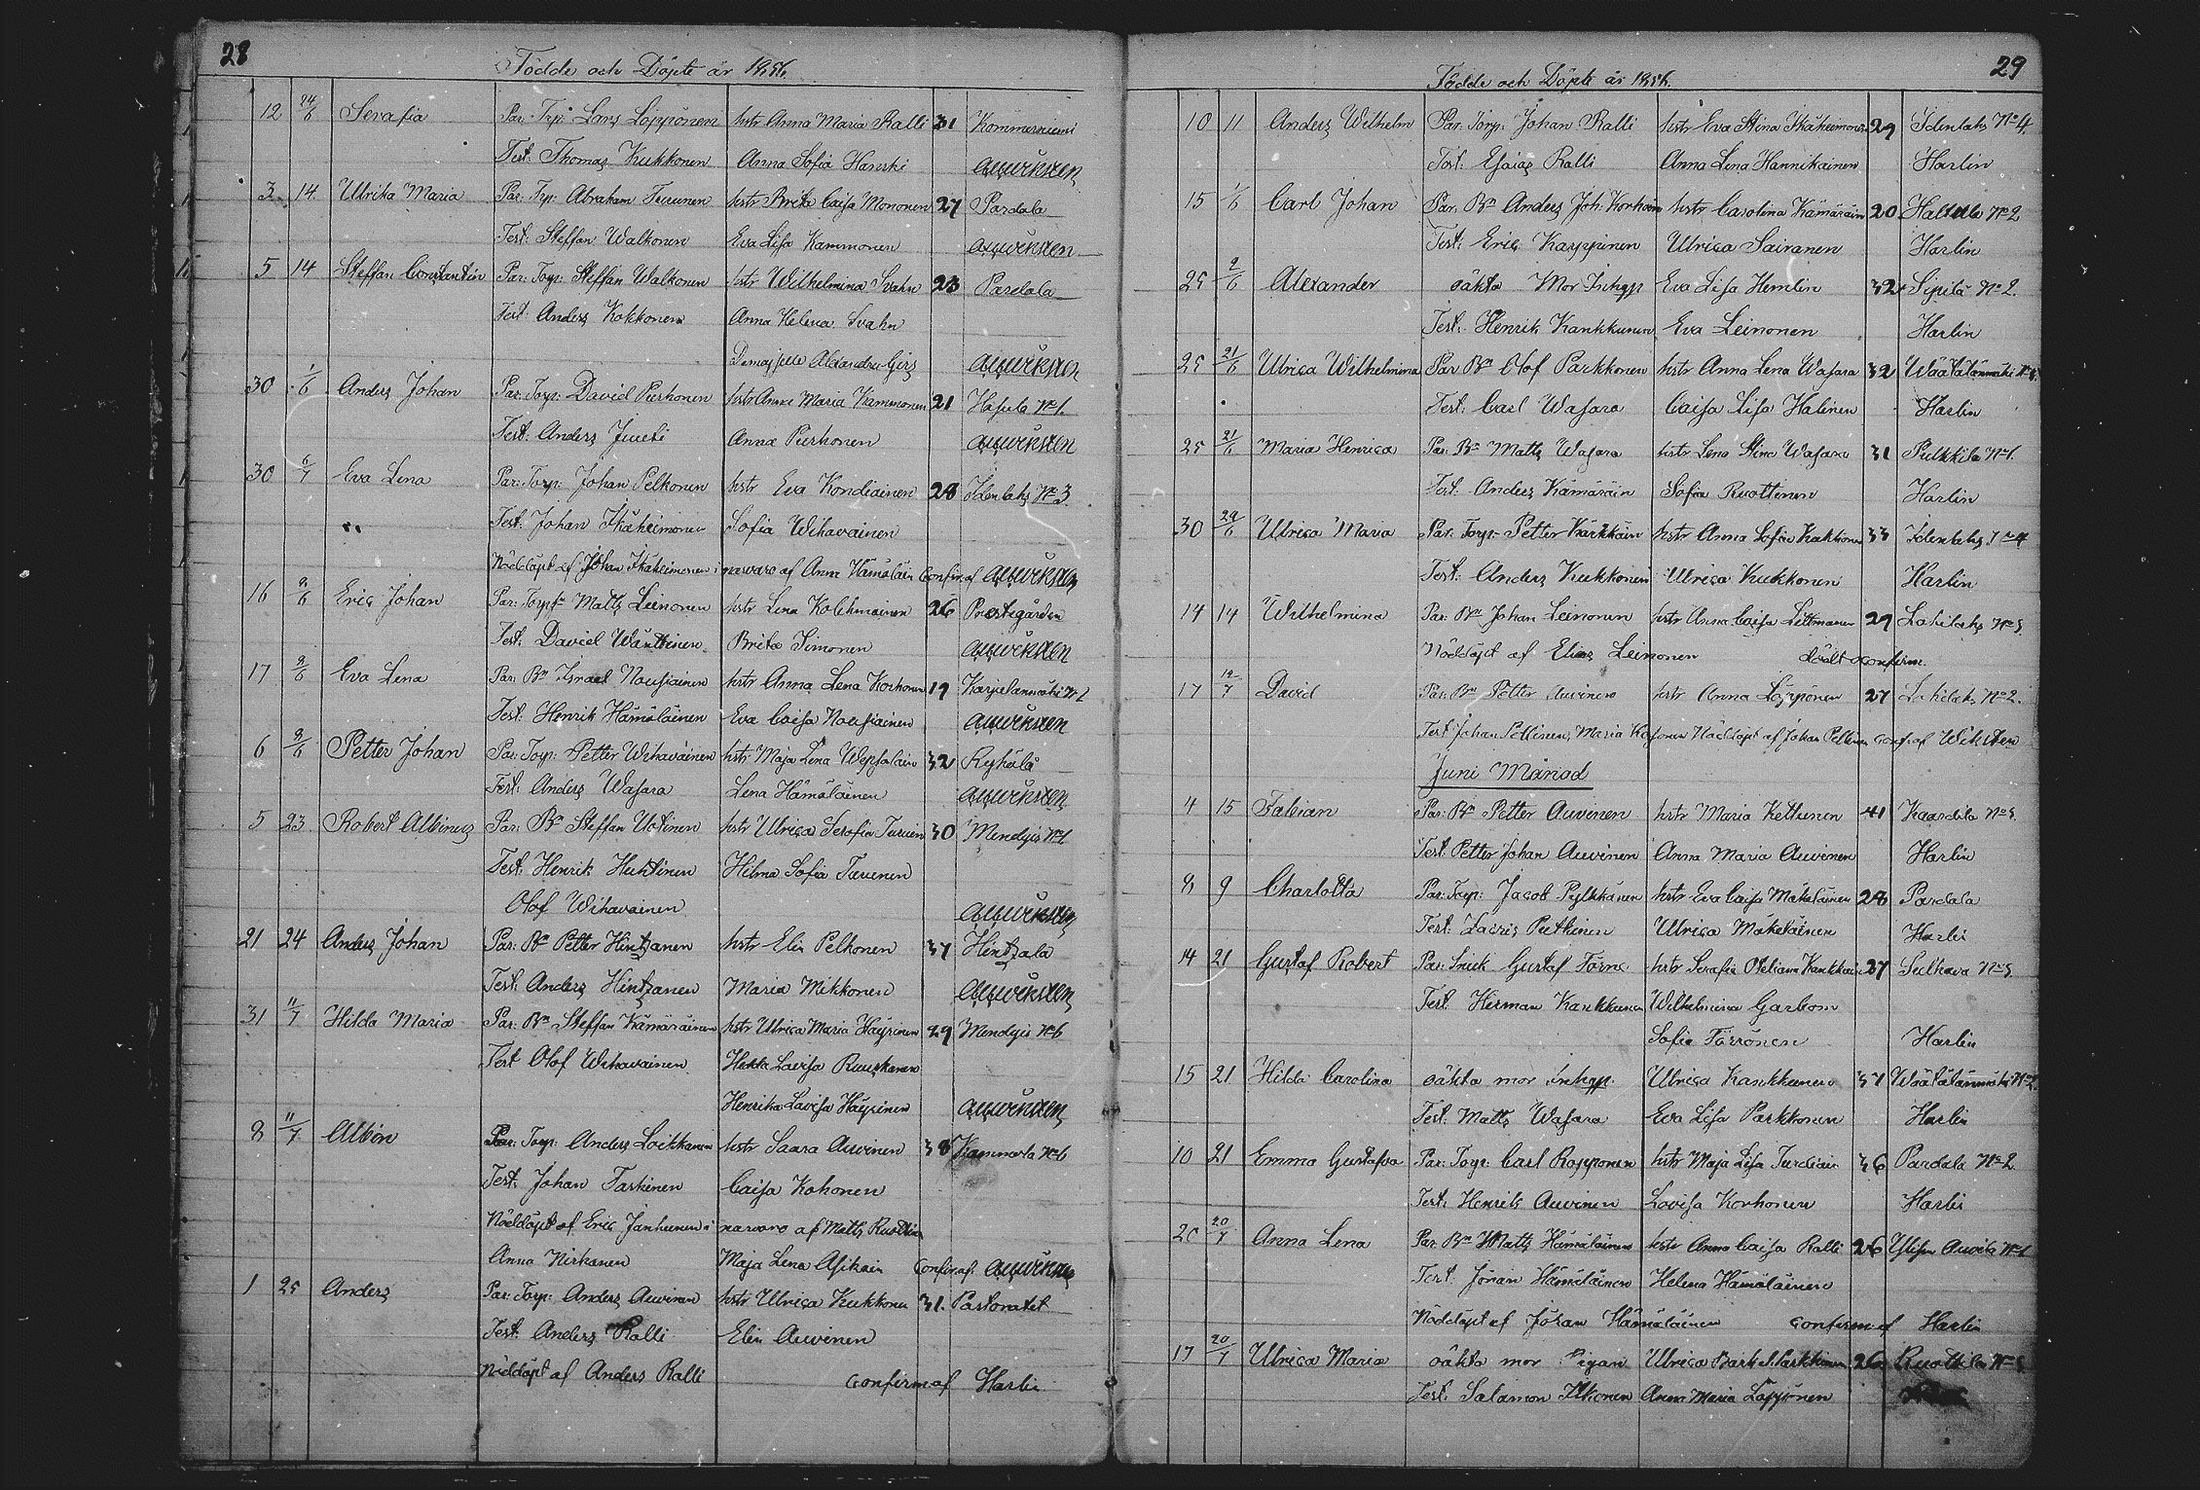 28
Födde och Döpte år 1856.
12 24/6 Serafia Par: Trp: Lars Löppönen hstr Anna Maria Ralli 31 Kommerniemi
Test: Thomas Kukkonen Anna Sofia Hanski
3 14 Ulrika Maria Par: Trp: Abraham Turunen hstr Brita Caisa Mononen 27 Pardala
Test: Steffan Walkonen Eva Lisa Kammonen
5 14 Steffan Constantin Par: Torp: Steffan Walkonen hstr Wilhelmina Svahn 23 Pardala
Test: Anders Kokkonen Anna Helena Svahn
30 1/6 Anders Johan Par: Torp: David Purhonen hstr Anna Maria Kammonen 21 No 1.
Test: Anders Anna Purhonen
30 6/7 Eva Lena Par: Torp: Johan Pelkonen hstr Eva Kondiainen 28 Idenlaks No 3.
Test: Johan Ikäheimonen Sofia Wihavainen
Nöddöpt af Johan Ikäheimonen i narvaro af Anna Hämäläin Confir. af
16 8/6 Eric Johan Par: Matts Leinonen hstr Lena Kolehmainen 26 Prestegården
Test: David Brita Simonen
17 9/6 Eva Lena Par: Bn Israel Nousiainen hstr Anna Lena Korhonen 19 Karjalanmäki No 2
Test: Henrik Hämäläinen Eva Caisa Nousiainen
6 9/6 Petter Johan Par: Torp: Petter Wihavainen hstr Maja Lena Wepsäläin 32 Ryhälä
Test: Anders Wasara Lena Hämäläinen
5 23 Robert Albinus Par: Bn Steffan Uotinen hstr Ulrica Serafia Turuin 30 No 1
Test: Henrik Huhtinen Hilma Sofia Turunen
Olof Wihavainen
21 24 Anders Johan Par: Bn Petter Hintsanen hstr Elin Pelkonen 37 Hintsala
Test: Anders Hintsanen Maria Mikkonen
31 11/7 Hilda Maria Par: Bn Steffan Kämäräinen hstr Ulrica Maria Häyrinen 29 No 6
Test Olof Wihavainen Hedda Lovisa Ruuskanen
Henrika Lovisa Häyrinen
8 11/7 Albin Par: Torp: Anders Loikkanen hstr Saara Auvinen 38 Kammarla No 6
Test: Johan Tarkinen Caisa Kohonen
Nöddöpt af Eric Janhunen i narvaro af Matts
Anna Nirkanen Maja Lena Asikain Confir. af
1 25 Anders Par: Torp: Anders Auvinen hstr Ulrica Kukkonen 31. Pastoratet
Test: Anders Ralli Elin Auvinen
Nöddöpt af Anders Ralli confirm af Harlin
29
Födde och Döpte år 1856.
10 11 Anders Wilhelm Par: Torp: Johan Ralli hstr Eva Stina Ikäheimonen 29 Idenlaks No 4.
Test: Esaias Ralli Anna Lena Hannikainen Harlin
15 1/6 Carl Johan Par: Bn Anders Joh. Korhoin hstr Carolina Kämäräin 20 No 2
Test: Eric Kauppinen Ulrica Sairanen Harlin
25 9/6 Alexander oäkta Mor Inhyp Eva Lisa Hemlin 32 Sipilä No 2.
Test: Henrik Kankkunen Eva Leinonen Harlin
25 21/6 Ulrica Wilhelmina Par Bn Olof Parkkonen hstr Anna Lena Wasara 32 Wäätälänmäki
Test: Carl Wasara Caisa Lisa Halinen Harlin
25 21/6 Maria Henrica Par: Bn Matts Wasara hstr Lena Stina Wasara 31 Pulkkila No 1.
Test: Anders Kämäräin Sofia Ruottinen Harlin
30 29/6 Ulrica Maria Par: Torp: Petter Kärkkäin hstr Anna Sofia Kukkonen 33 Idenlaks
Test: Anders Kukkonen Ulrica Kukkonen Harlin
14 14 Wilhelmina Par: Bn Johan Leinonen hstr Anna Caisa 29 Lohilaks No 5.
Nöddöpt af Elias Leinonen
17 12/7 David Par: Bn Petter Auvinen hstr Anna Löppönen 27 Lohilaks No 2.
Test Johan Pellinen, Maria Nöddöpt af Johan Pellinen conf af
Juni Månad
4 15 Fabian Par: Bn Petter Auvinen hstr Maria Kettunen 41 Kaardila No 5.
Test: Petter Johan Auvinen Anna Maria Auvinen Harlin
8 9 Charlotta Par: Torp: Jacob Pylkkänen hstr Eva Caisa Mäkeläinen 28 Pardala
Test: Putkinen Ulrica Mäkeläinen Harlin
14 21 Gustaf Robert Par: Gustaf hstr Serafia 27 Sulkava No 5.
Test: Herman Kankkunen Wilhelmina
Sofia Harlin
15 21 Hilda Carolina oäkta mor Inhyp. Ulrica Kankkunen 37 Wäätälänmäki No 2.
Test: Matts Wasara Eva Lisa Parkkonen Harlin
10 21 Emma Gustafva Par: Torp: Carl Ropponen hstr Maja Lisa 36 Pardala No 2.
Test: Henrik Auvinen Lovisa Korhonen Harlin
20 20/7 Anna Lena Par: Bn Matts Hämäläinen hstr Anna Caisa Ralli 26
Test: Johan Hämäläinen Helena Hämäläinen
Nöddöpt af Johan Hämäläinen confirm af Harlin
17 20/7 Ulrica Maria oäkta mor Pigan Ulrica 26
Test: Salamon Anna Maria Löppönen